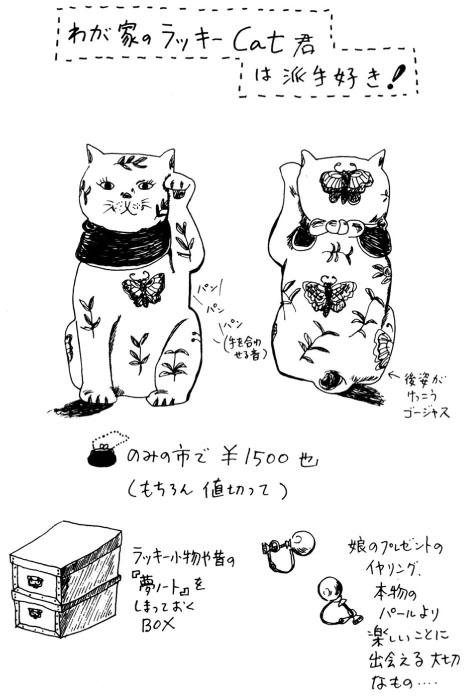 わが家のラッキーCat君
は派手好き!
パン
パン
パン
(手を合わ
せる音)
後姿が
けっこう
ゴージャス
のみの市で ¥1500也
(もちろん 値切って)
ラッキー小物や昔の
『夢ノート』を
しまっておく
BOX
娘のプレゼントの
イヤリング、
本物の
パールより
楽しいことに
出会える大切
なもの‥‥